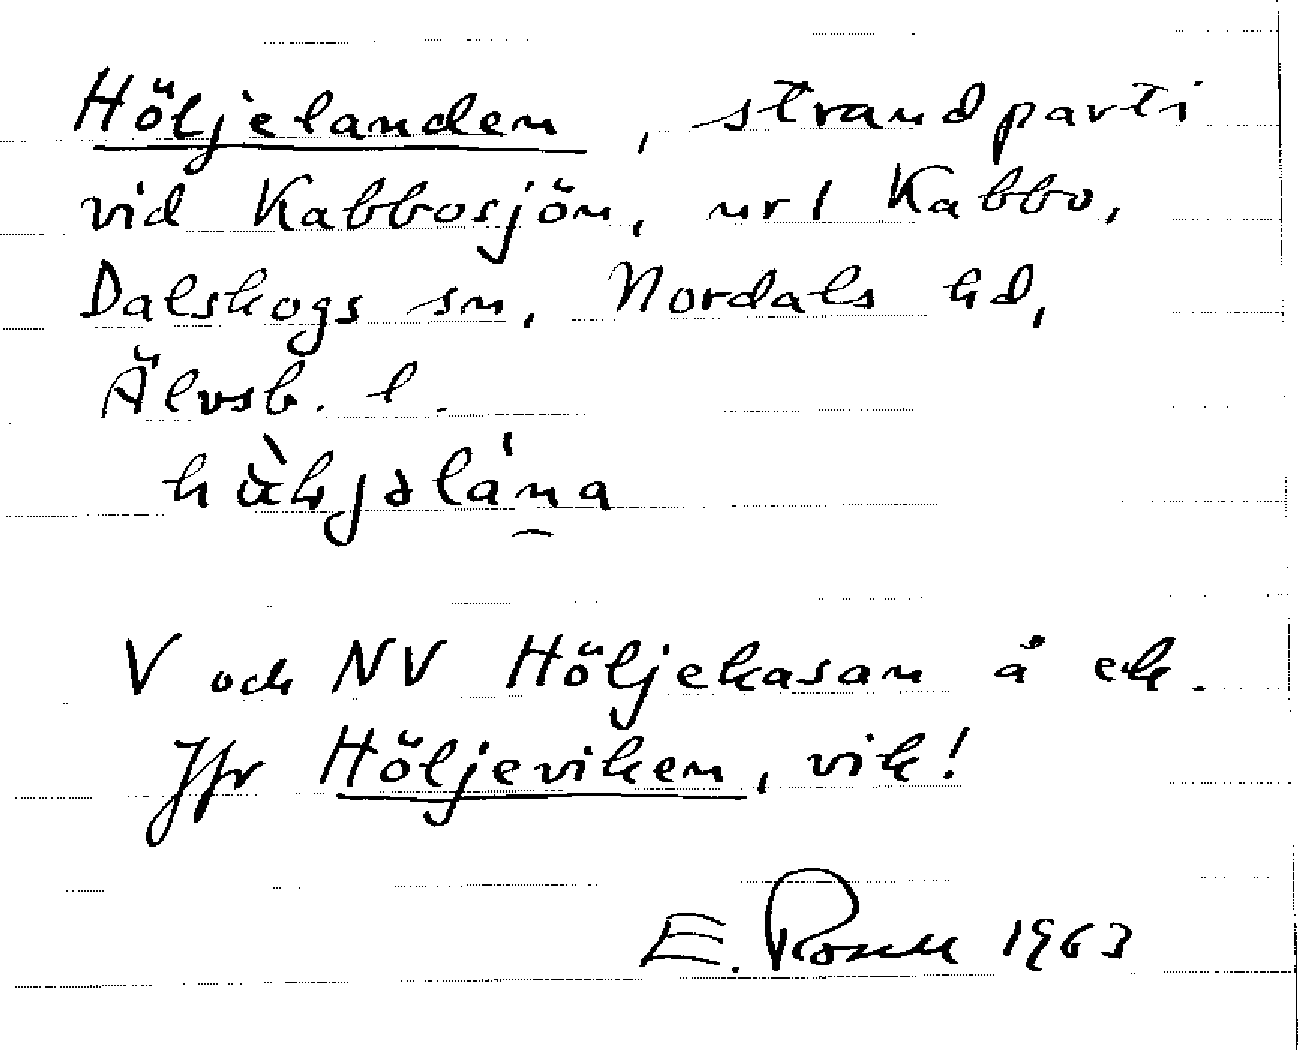 Höljelanden, strandparti
vid Kabbosjön, nr 1 Kabbo,
Dalskogs sn, Nordals hd,
Älvsb. l.
V och NV Höljekasan å ek.
Jfr Höljeviken, vik!
E. Rosell 1963